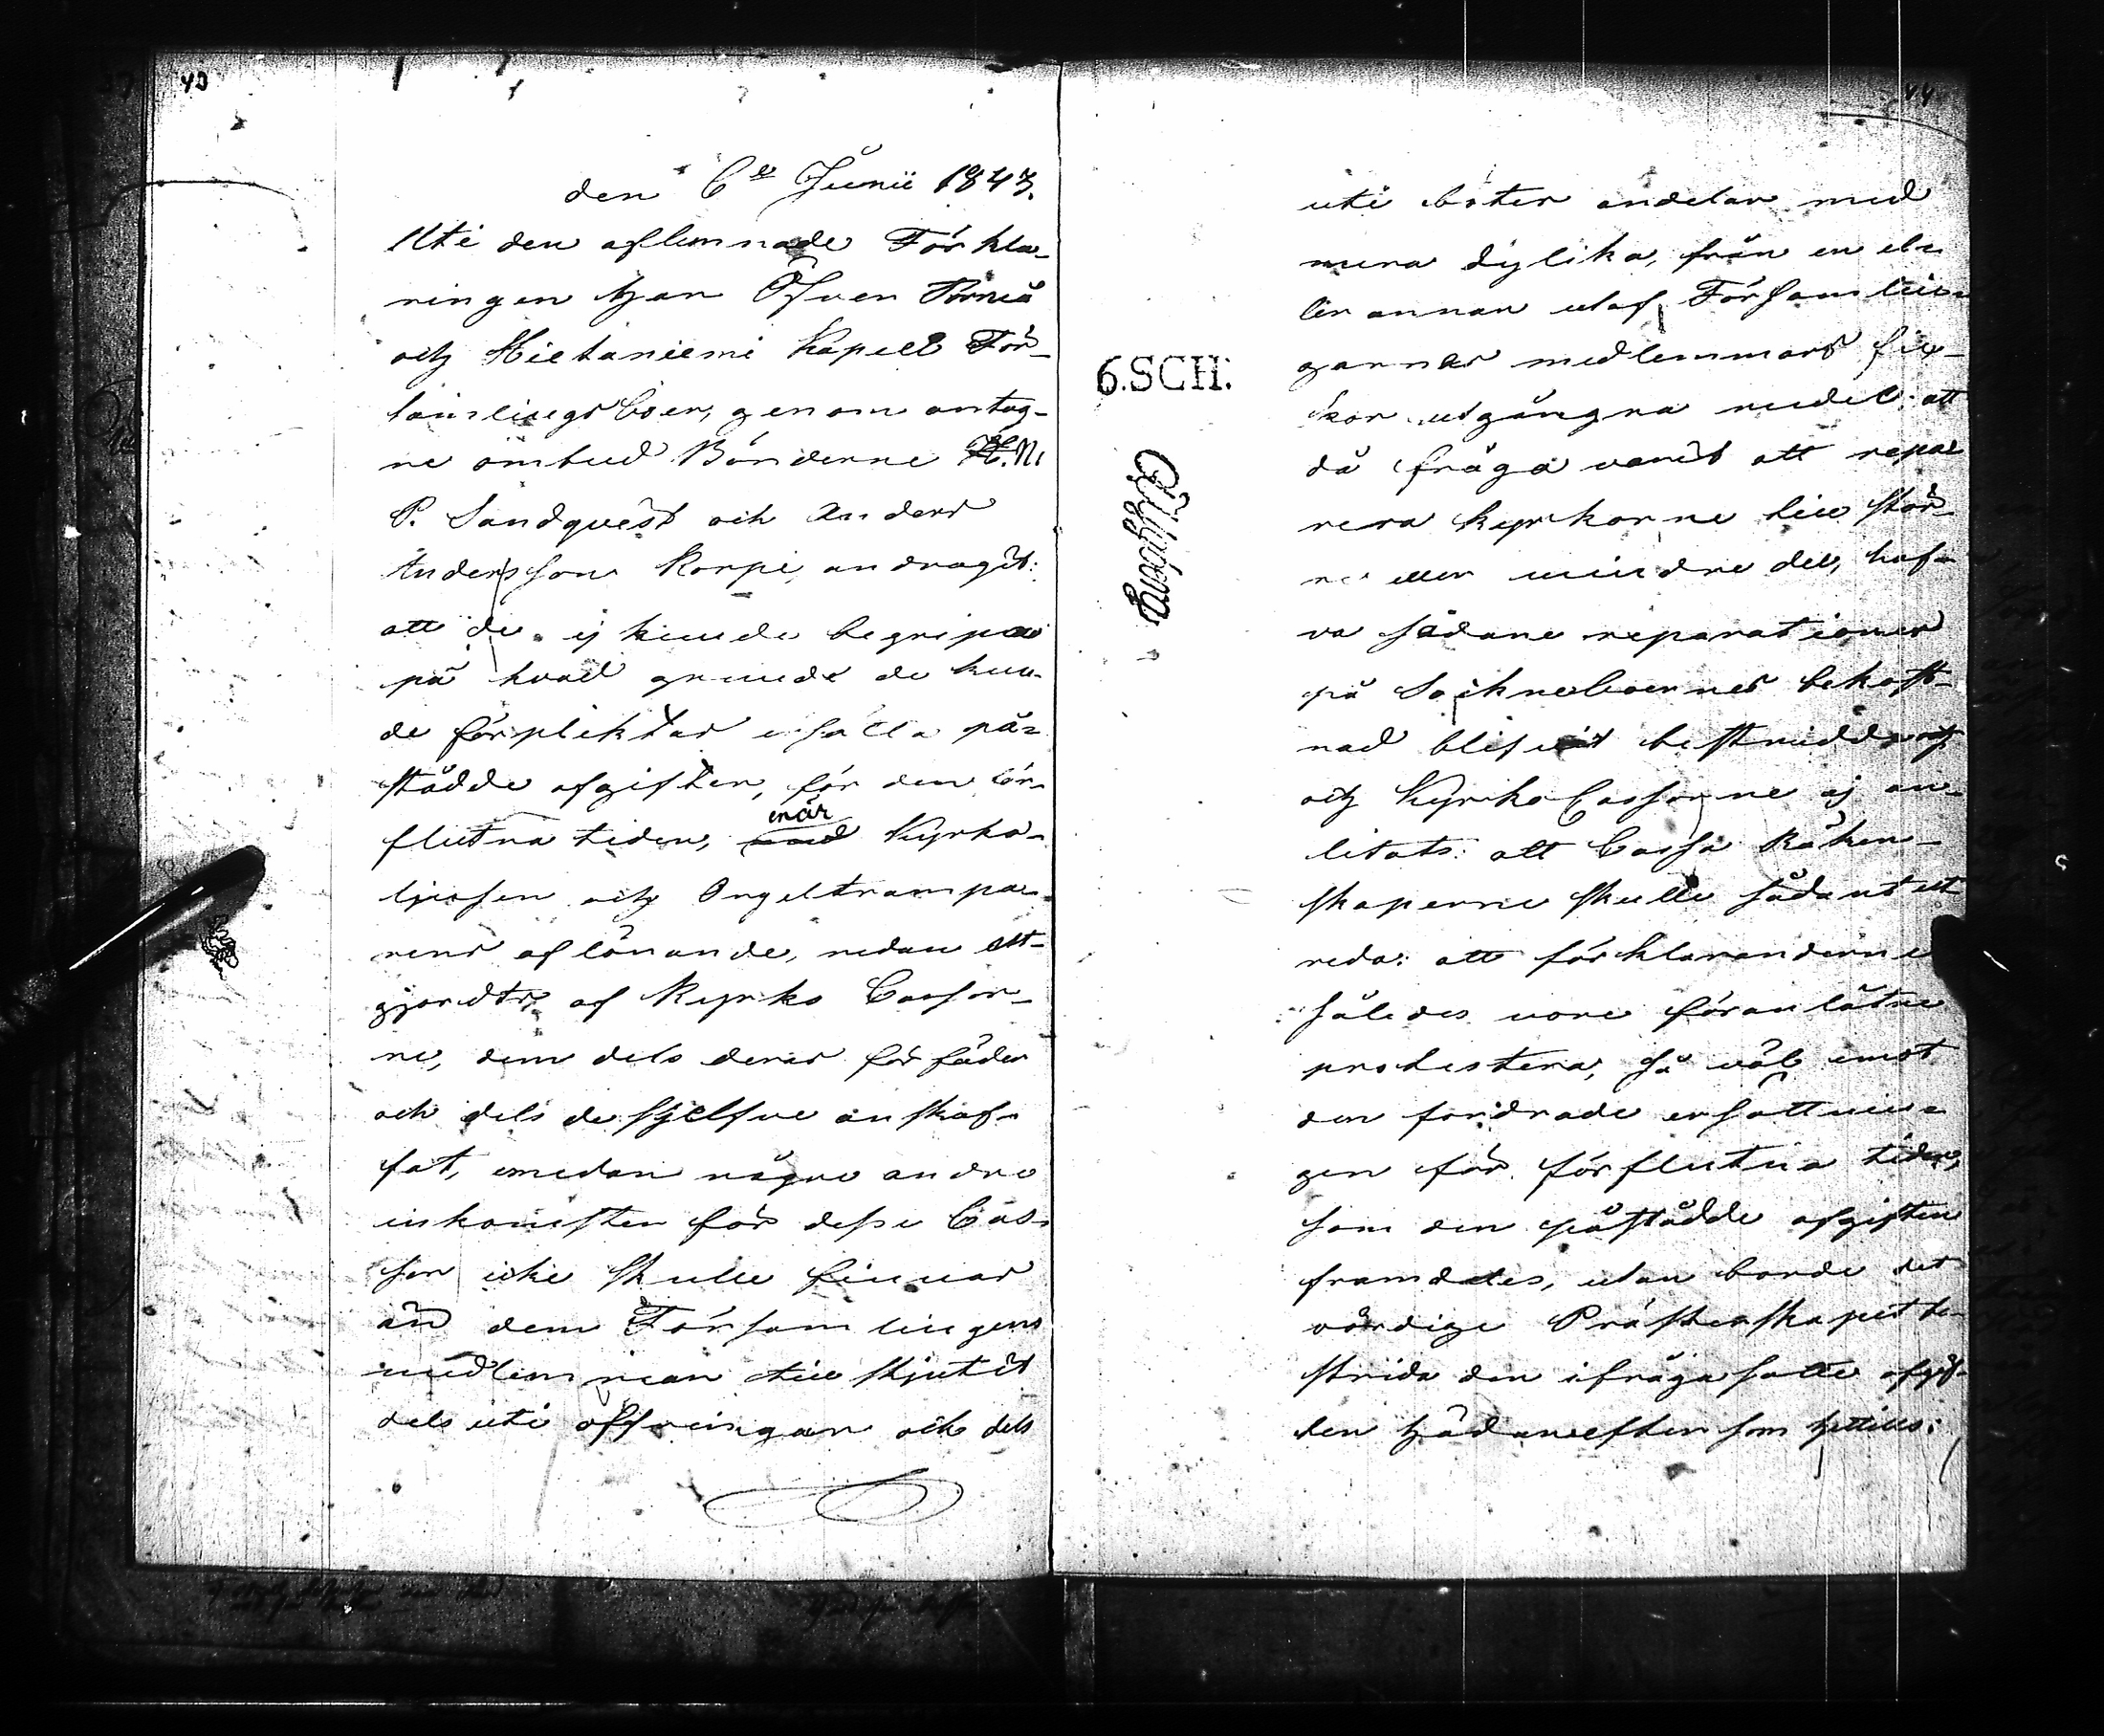 43
den 6te Junii 1843.
Uti den aflemnade Förkla-
ringen har Öfver Torneå
och Hietaniemi Kapell För-
samlingsboer, genom antag-
ne ombud Bönderne
P. Sandqvist och Anders
Andersson Korpi, andragit:
att de ej kunde begripa
på hvad grund de kun-
de förpliktas ersätta på-
stådde afgiften, för den för-
flutna tiden, enär Kyrko-
ljusen och Orgeltrampa-
rens aflönande, redan utt-
gjordts af Kyrko Cassor-
ne, dem dels deras förfäder
och dels de sjelfve anskaf-
fat, emedan några andre
inkomster för desse Cas-
sor icke skulle finnas
än dem Församlingens
medlemmar tillskjutit
dels uti offringar och dels
44
6.SCH:
uti böter andelar med
mera dylika, från en el-
ler annan utaf Församlin-
garnas medlemmars fic-
kor utgångna medel: att
då fråga varit att repa-
rera kyrkorne till stör-
re eller mindre del, haf-
va sådane reparationer
på Sockneboernes bekost-
nad blifvit bestridde
och Kyrko Cassorne ej an-
litats: att Cassa Räken-
skaperne skulle sådant ut-
reda: att förklaranderne
således vore föranlåtne
protestera, så väl emot
den fordrade ersättnin-
gen för förflutna tider,
som den påstådde afgiften
framdeles, utan borde det
vördige Prästerskapet be-
strida den ifrågasatte afgif-
ten hädanefter som hittills: